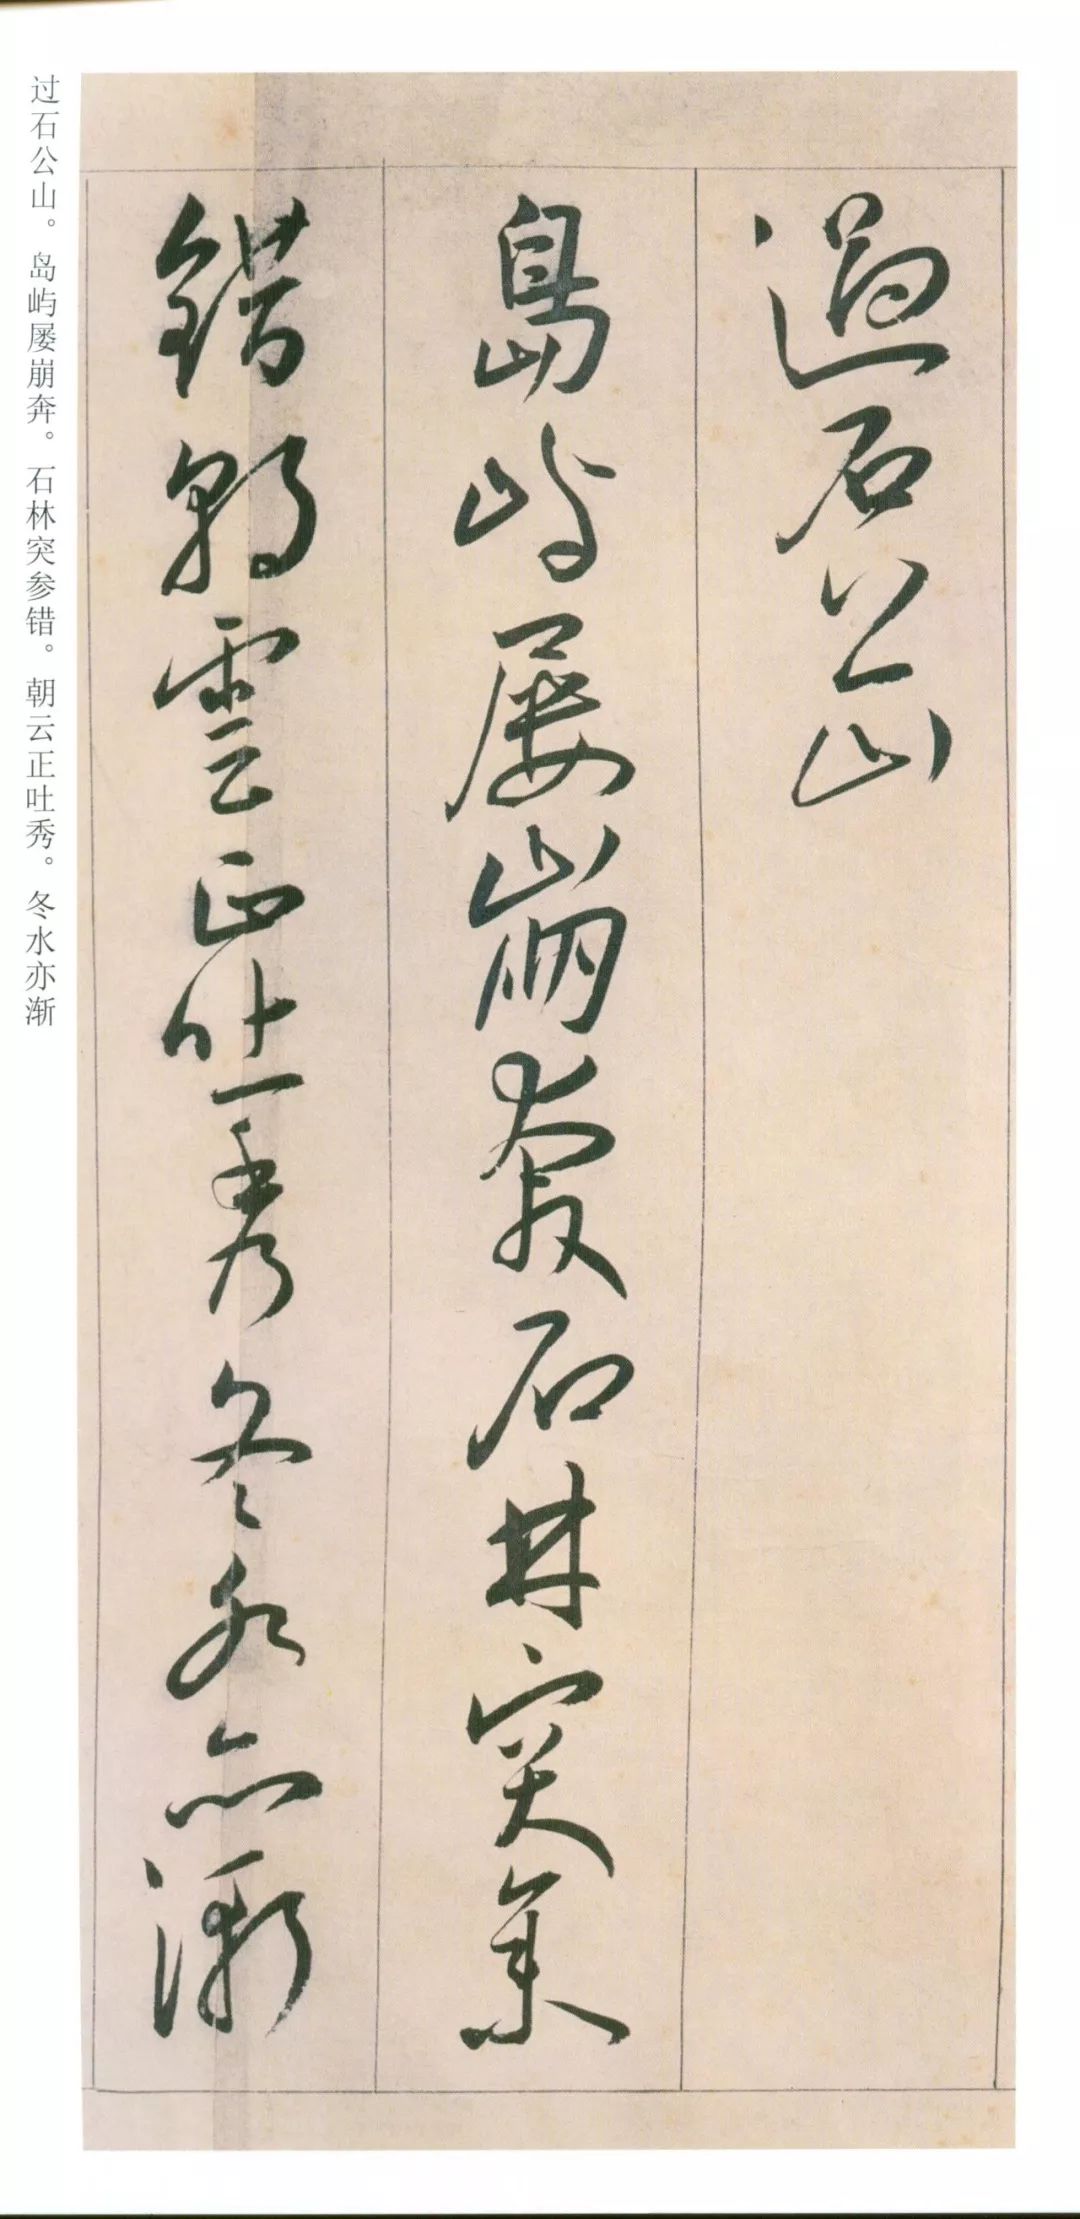 過石公山
島嶼屡崩奔石林突参
錯朝雲正吐秀冬水亦漸
过石公山。岛屿屡崩奔。石林突参错。朝云正吐秀。冬水亦渐